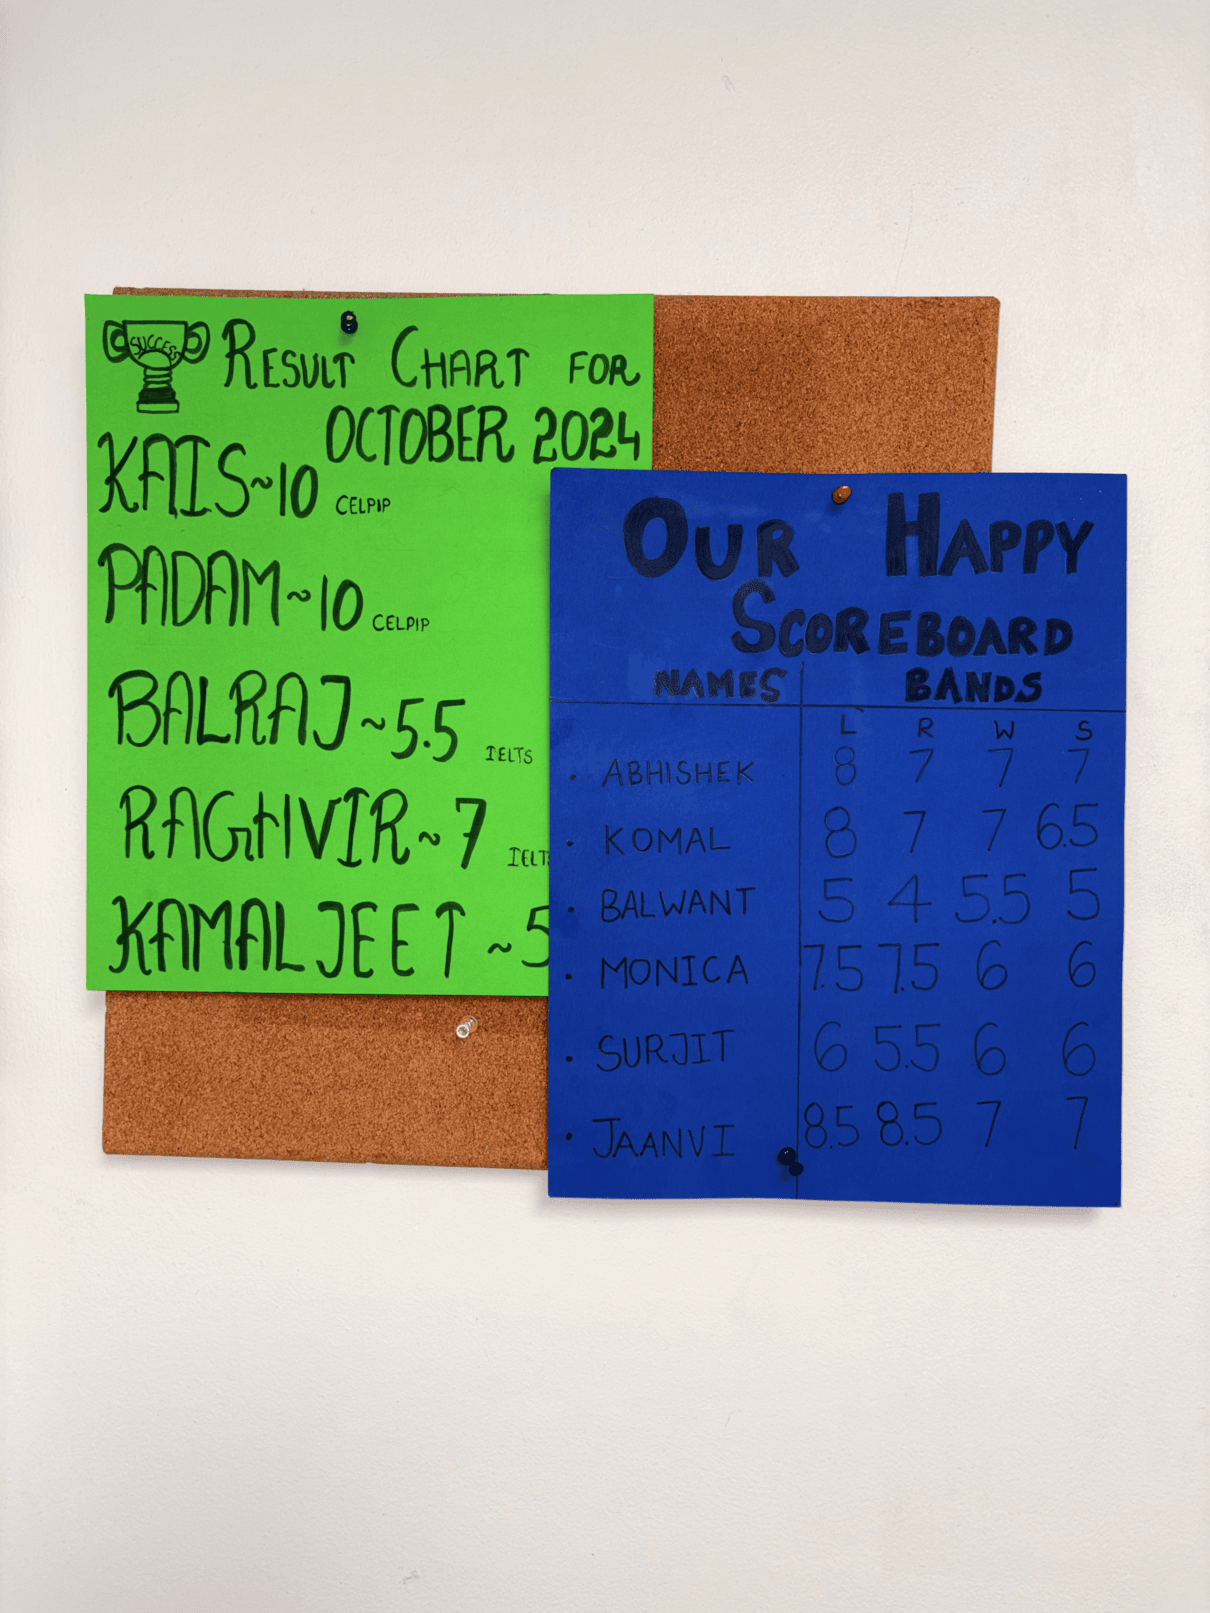 SUCCESS
RESULT CHART FOR
OCTOBER 2024
KAIS~10 CELPIP
PADAM~10 CELPIP
BALRAJ~5.5 IELTS
RAGHVIR~7
KAMALJEET ~5
OUR HAPPY
SCOREBOARD
NAMES BANDS
L R W S
• ABHISHEK 8 7 7 7
• KOMAL 8 7 7 6.5
• BALWANT 5 4 5.5 5
• MONICA 7.5 7.5 6 6
• SURJIT 6 5.5 6 6
• JAANVI 8.5 8.5 7 7